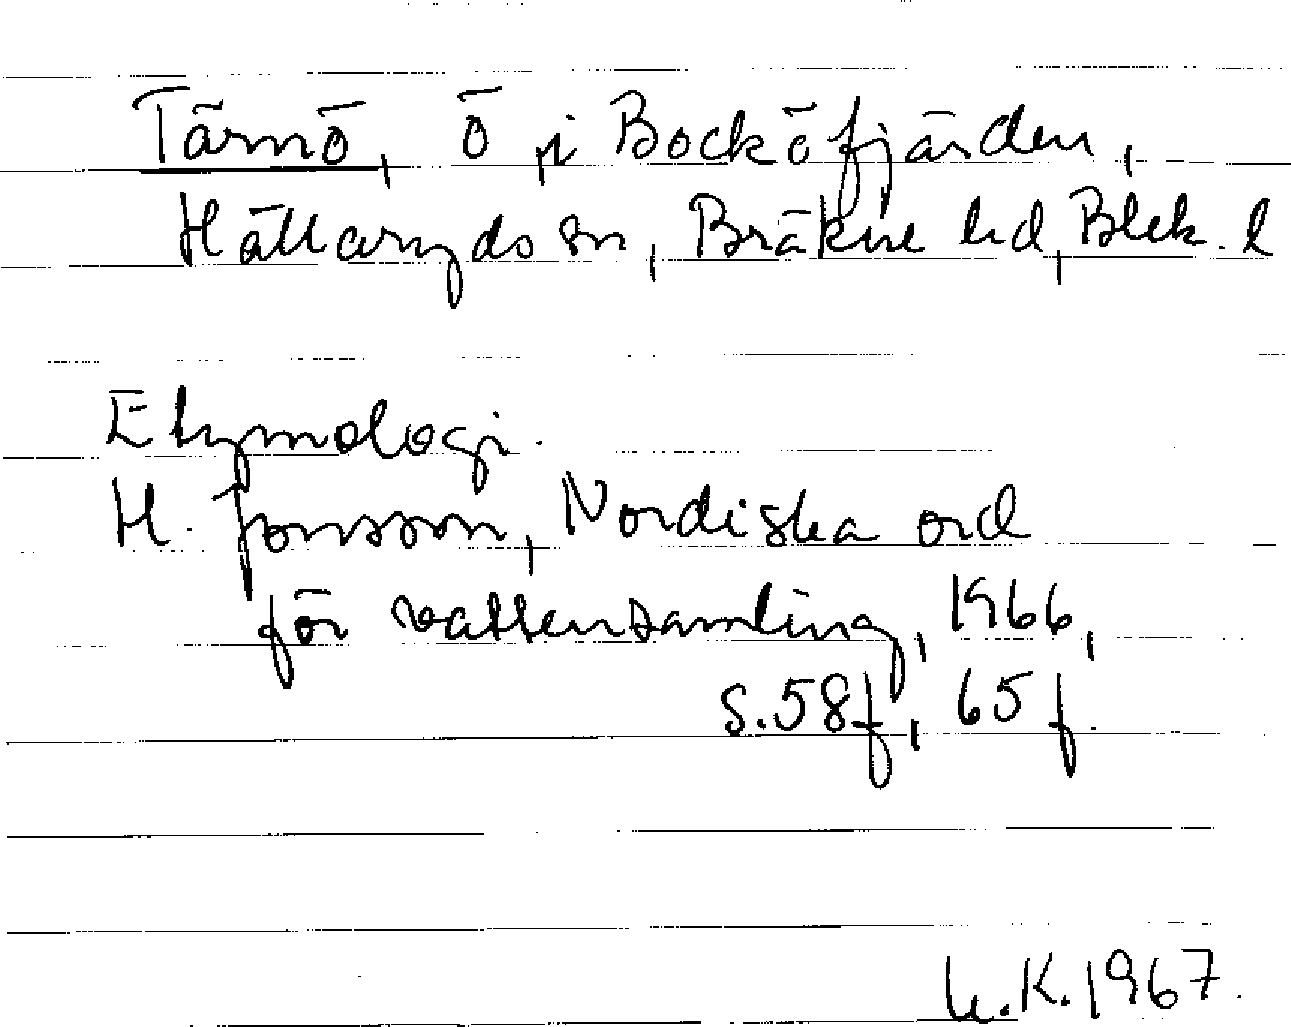 Tärnö, ö i Bocköfjärden,
Hällaryds sn, Bräkne hd, Blek. l
Etymologi.
H. Jonsson, Nordiska ord
för vattensamling, 1966,
s. 58 f, 65 f.
U.K. 1967.